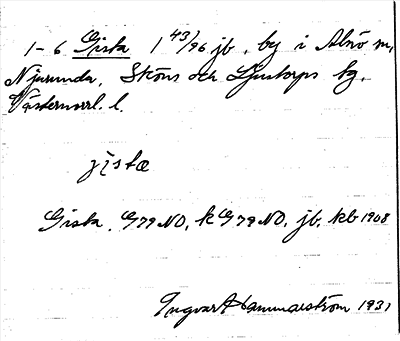 1-6 Gista 1 43/96 jb, by i Alnö m,
Njurunda, Sköns och Ljustorps tg.
Västernorrl. l.
jista
Gista. G79NO, k G79NO, jb, kb 1908
Ingvar Hammarström 1931